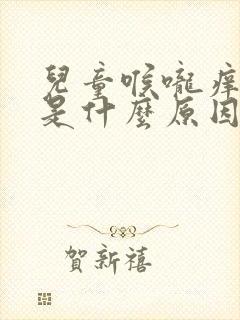 兒童喉嚨痒
是什麼原因
賀新禧